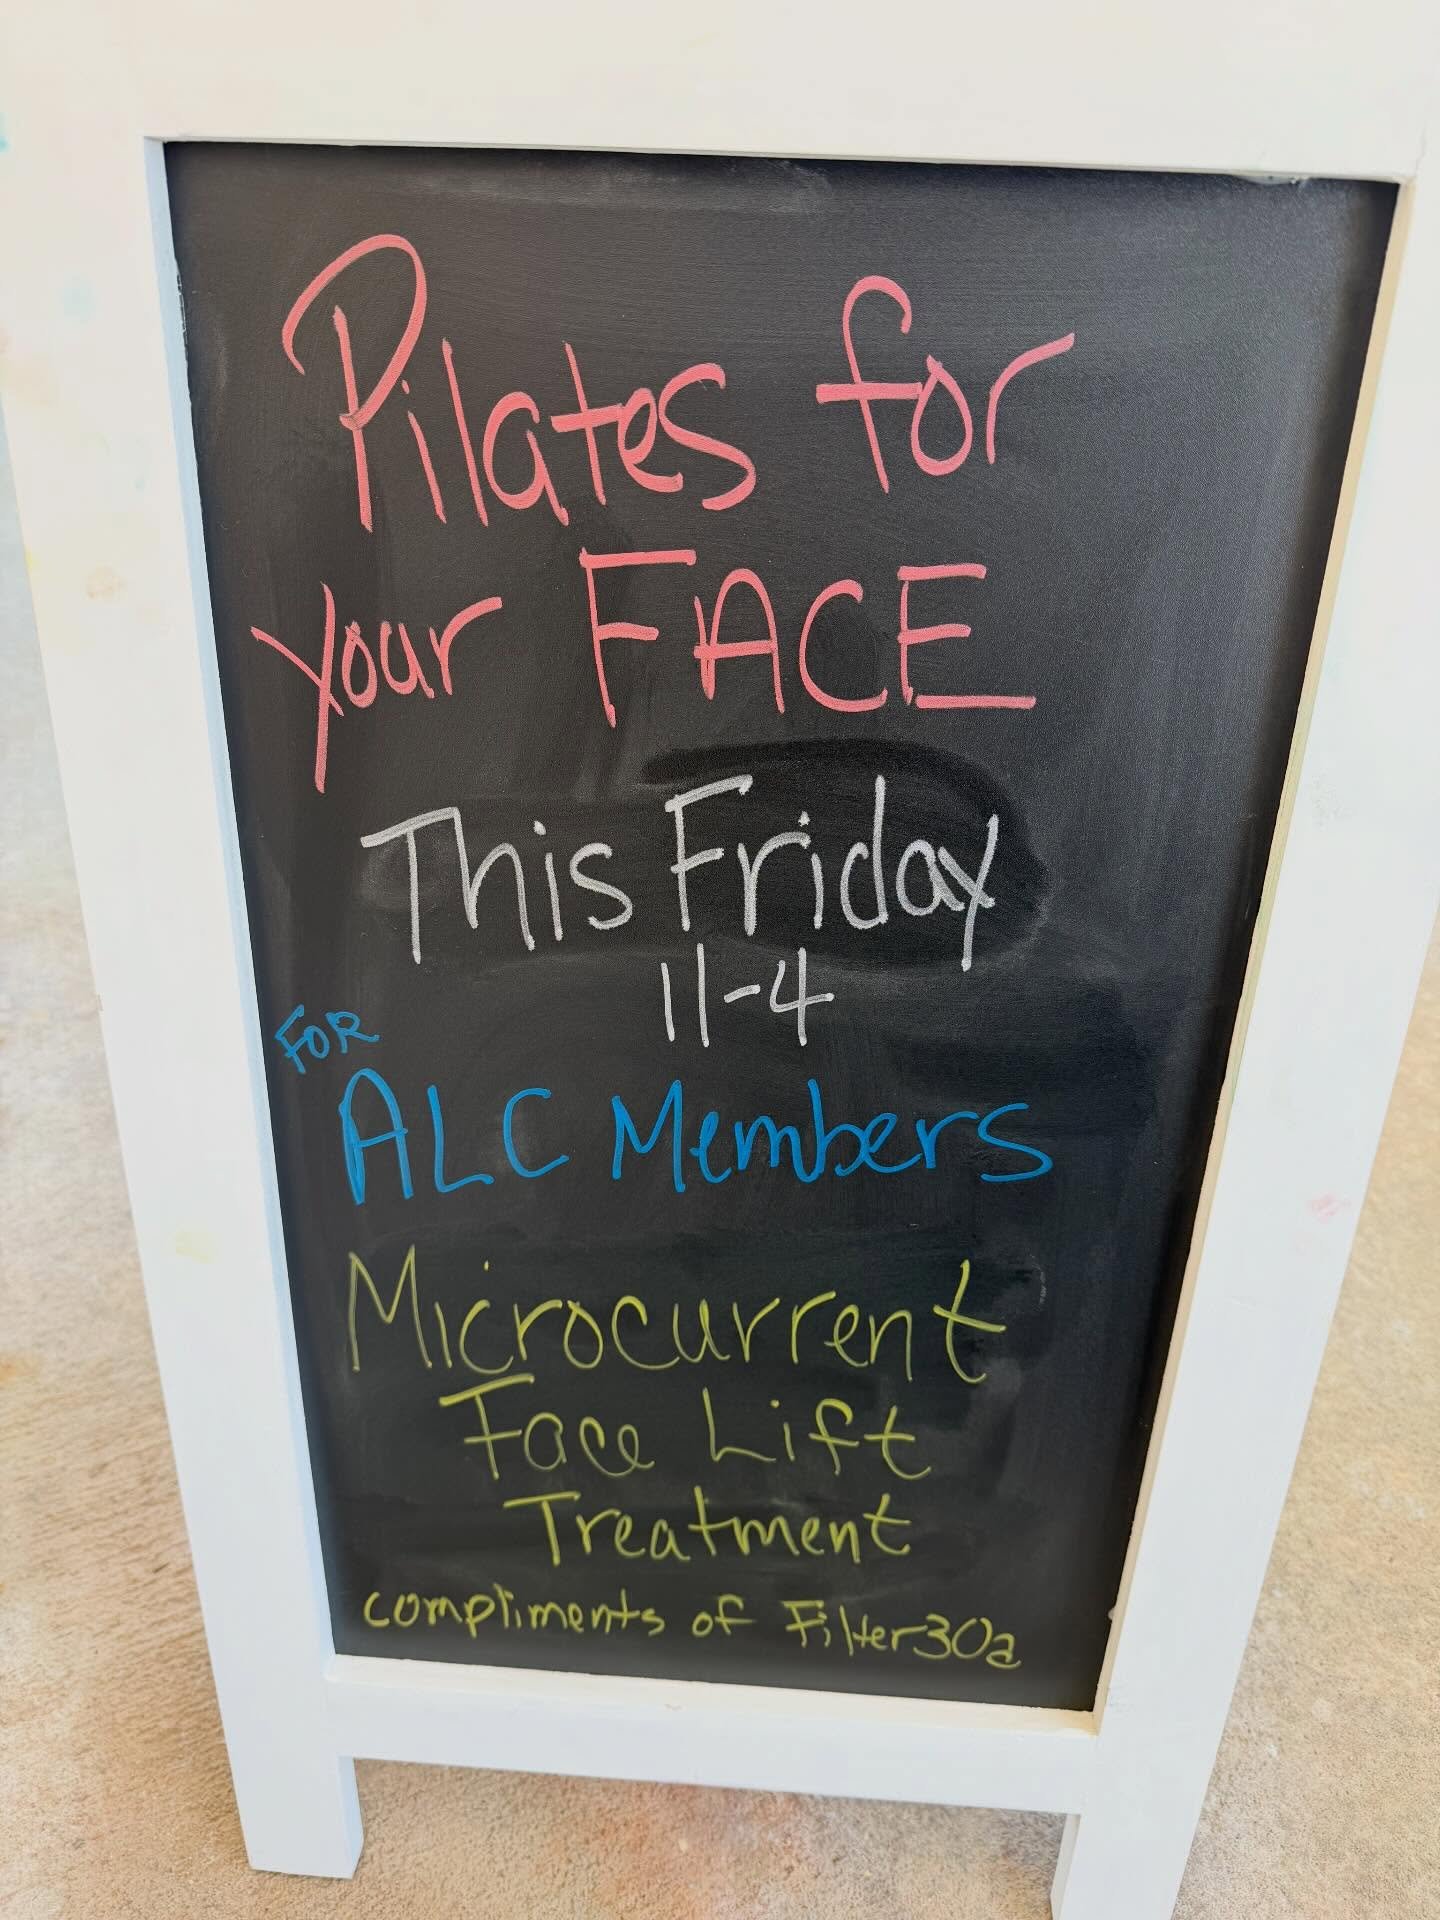 Pilates for
your FACE
This Friday
11-4
FOR
ALC Members
Microcurrent
Face Lift
Treatment
compliments of Filter30a